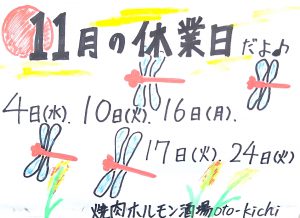 11月の休業日だよ♪
4日(水)、10日(火)、16日(月)、
17日(火)、24日(火)
焼肉ホルモン酒場oto-kichi